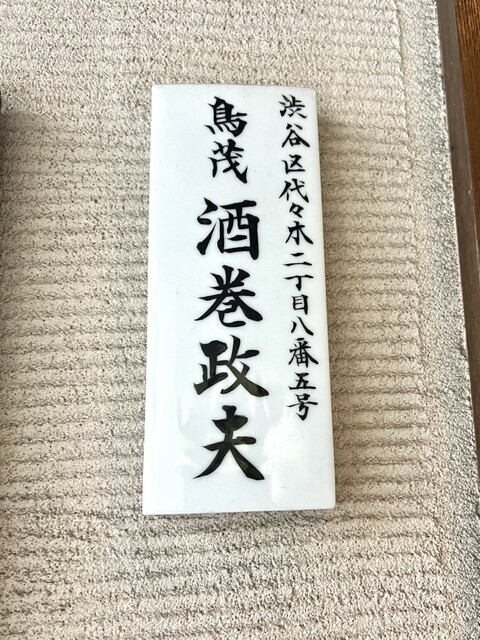 渋谷区代々木二丁目八番五号
鳥茂 酒巻政夫